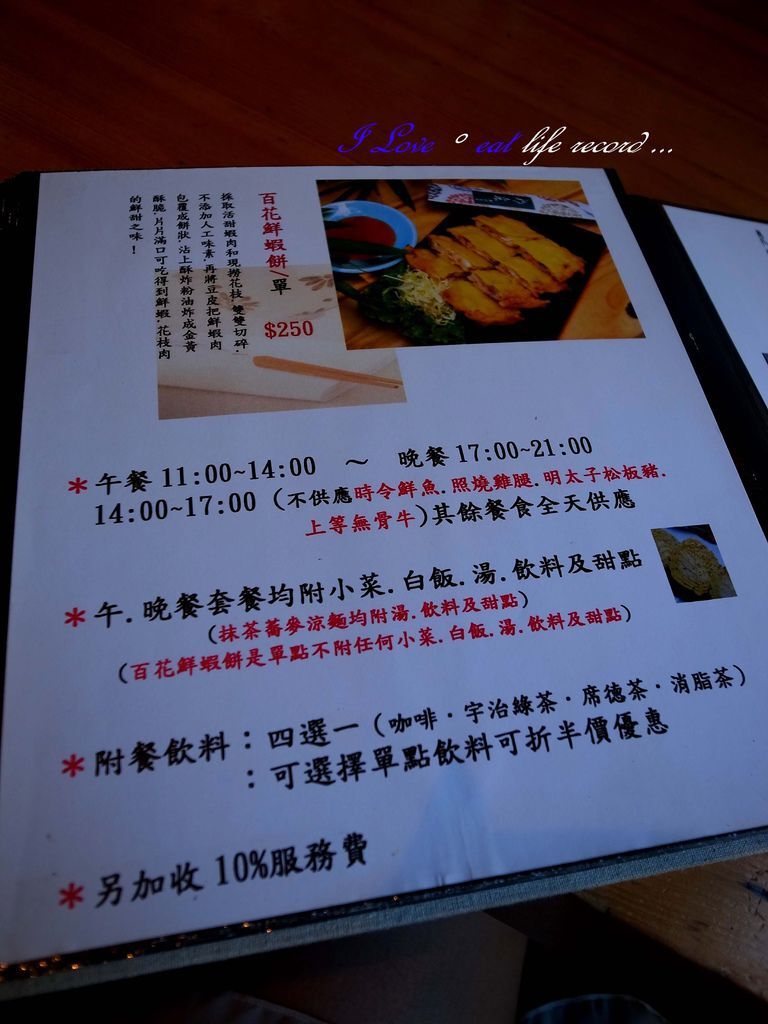 I Love ° eat life record ...
百花鮮蝦餅/單 $250
採取活甜蝦肉和現撈花枝，雙雙切碎，
不添加人工味素，再將豆皮把鮮蝦肉
包覆成餅狀，沾上酥炸粉油炸成金黃
酥脆，片片滿口可吃得到鮮蝦，花枝肉
的鮮甜之味！
* 午餐 11:00~14:00 ～ 晚餐 17:00~21:00
14:00~17:00 (不供應時令鮮魚.照燒雞腿.明太子松板豬.
上等無骨牛)其餘餐食全天供應
* 午.晚餐套餐均附小菜.白飯.湯.飲料及甜點
(抹茶蕎麥涼麵均附湯.飲料及甜點)
(百花鮮蝦餅是單點不附任何小菜.白飯.湯.飲料及甜點)
* 附餐飲料：四選一 (咖啡．宇治綠茶．席德茶．消脂茶)
：可選擇單點飲料可折半價優惠
* 另加收 10%服務費